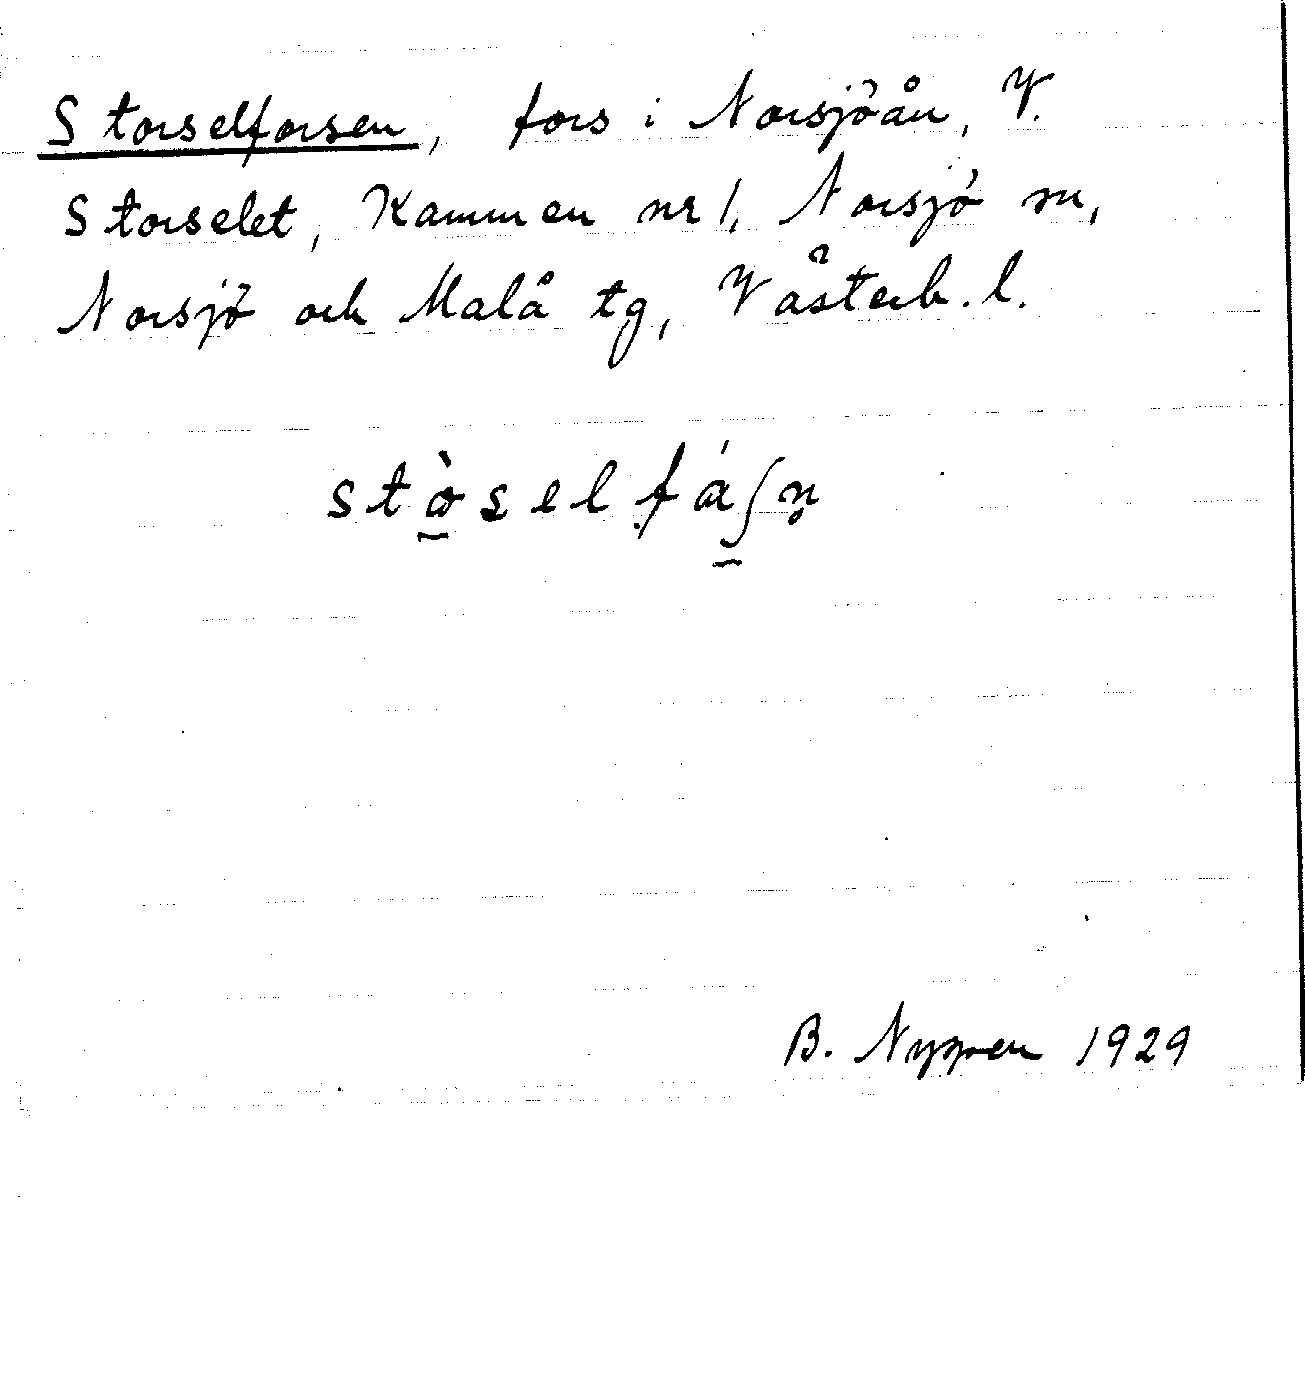 Storselforsen, fors i Norsjöån, V.
Storselet, Kammen nr 1, Norsjö sn,
Norsjö och Malå tg, Västerb. l.
stòselfáʃn̥
B. Nygren 1929